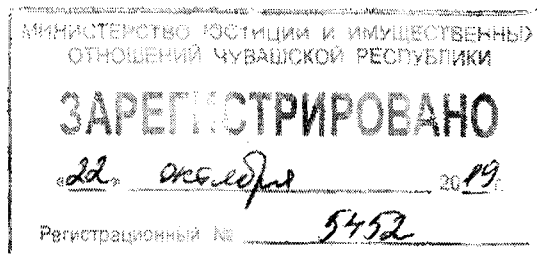 МИНИСТЕРСТВО ЮСТИЦИИ И ИМУЩЕСТВЕННЫХ
ОТНОШЕНИЙ ЧУВАШСКОЙ РЕСПУБЛИКИ
ЗАРЕГИСТРИРОВАНО
«22» октября 2019 г.
Регистрационный № 5452